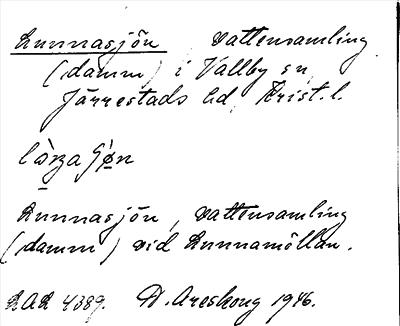 Lunnasjön, vattensamling
(damm) i Vallby sn,
Järrestads hd, Krist. l.
Lunnasjön, vattensamling
(damm) vid Lunnamöllan.
LAL 4389. D. Areskoug 1946.